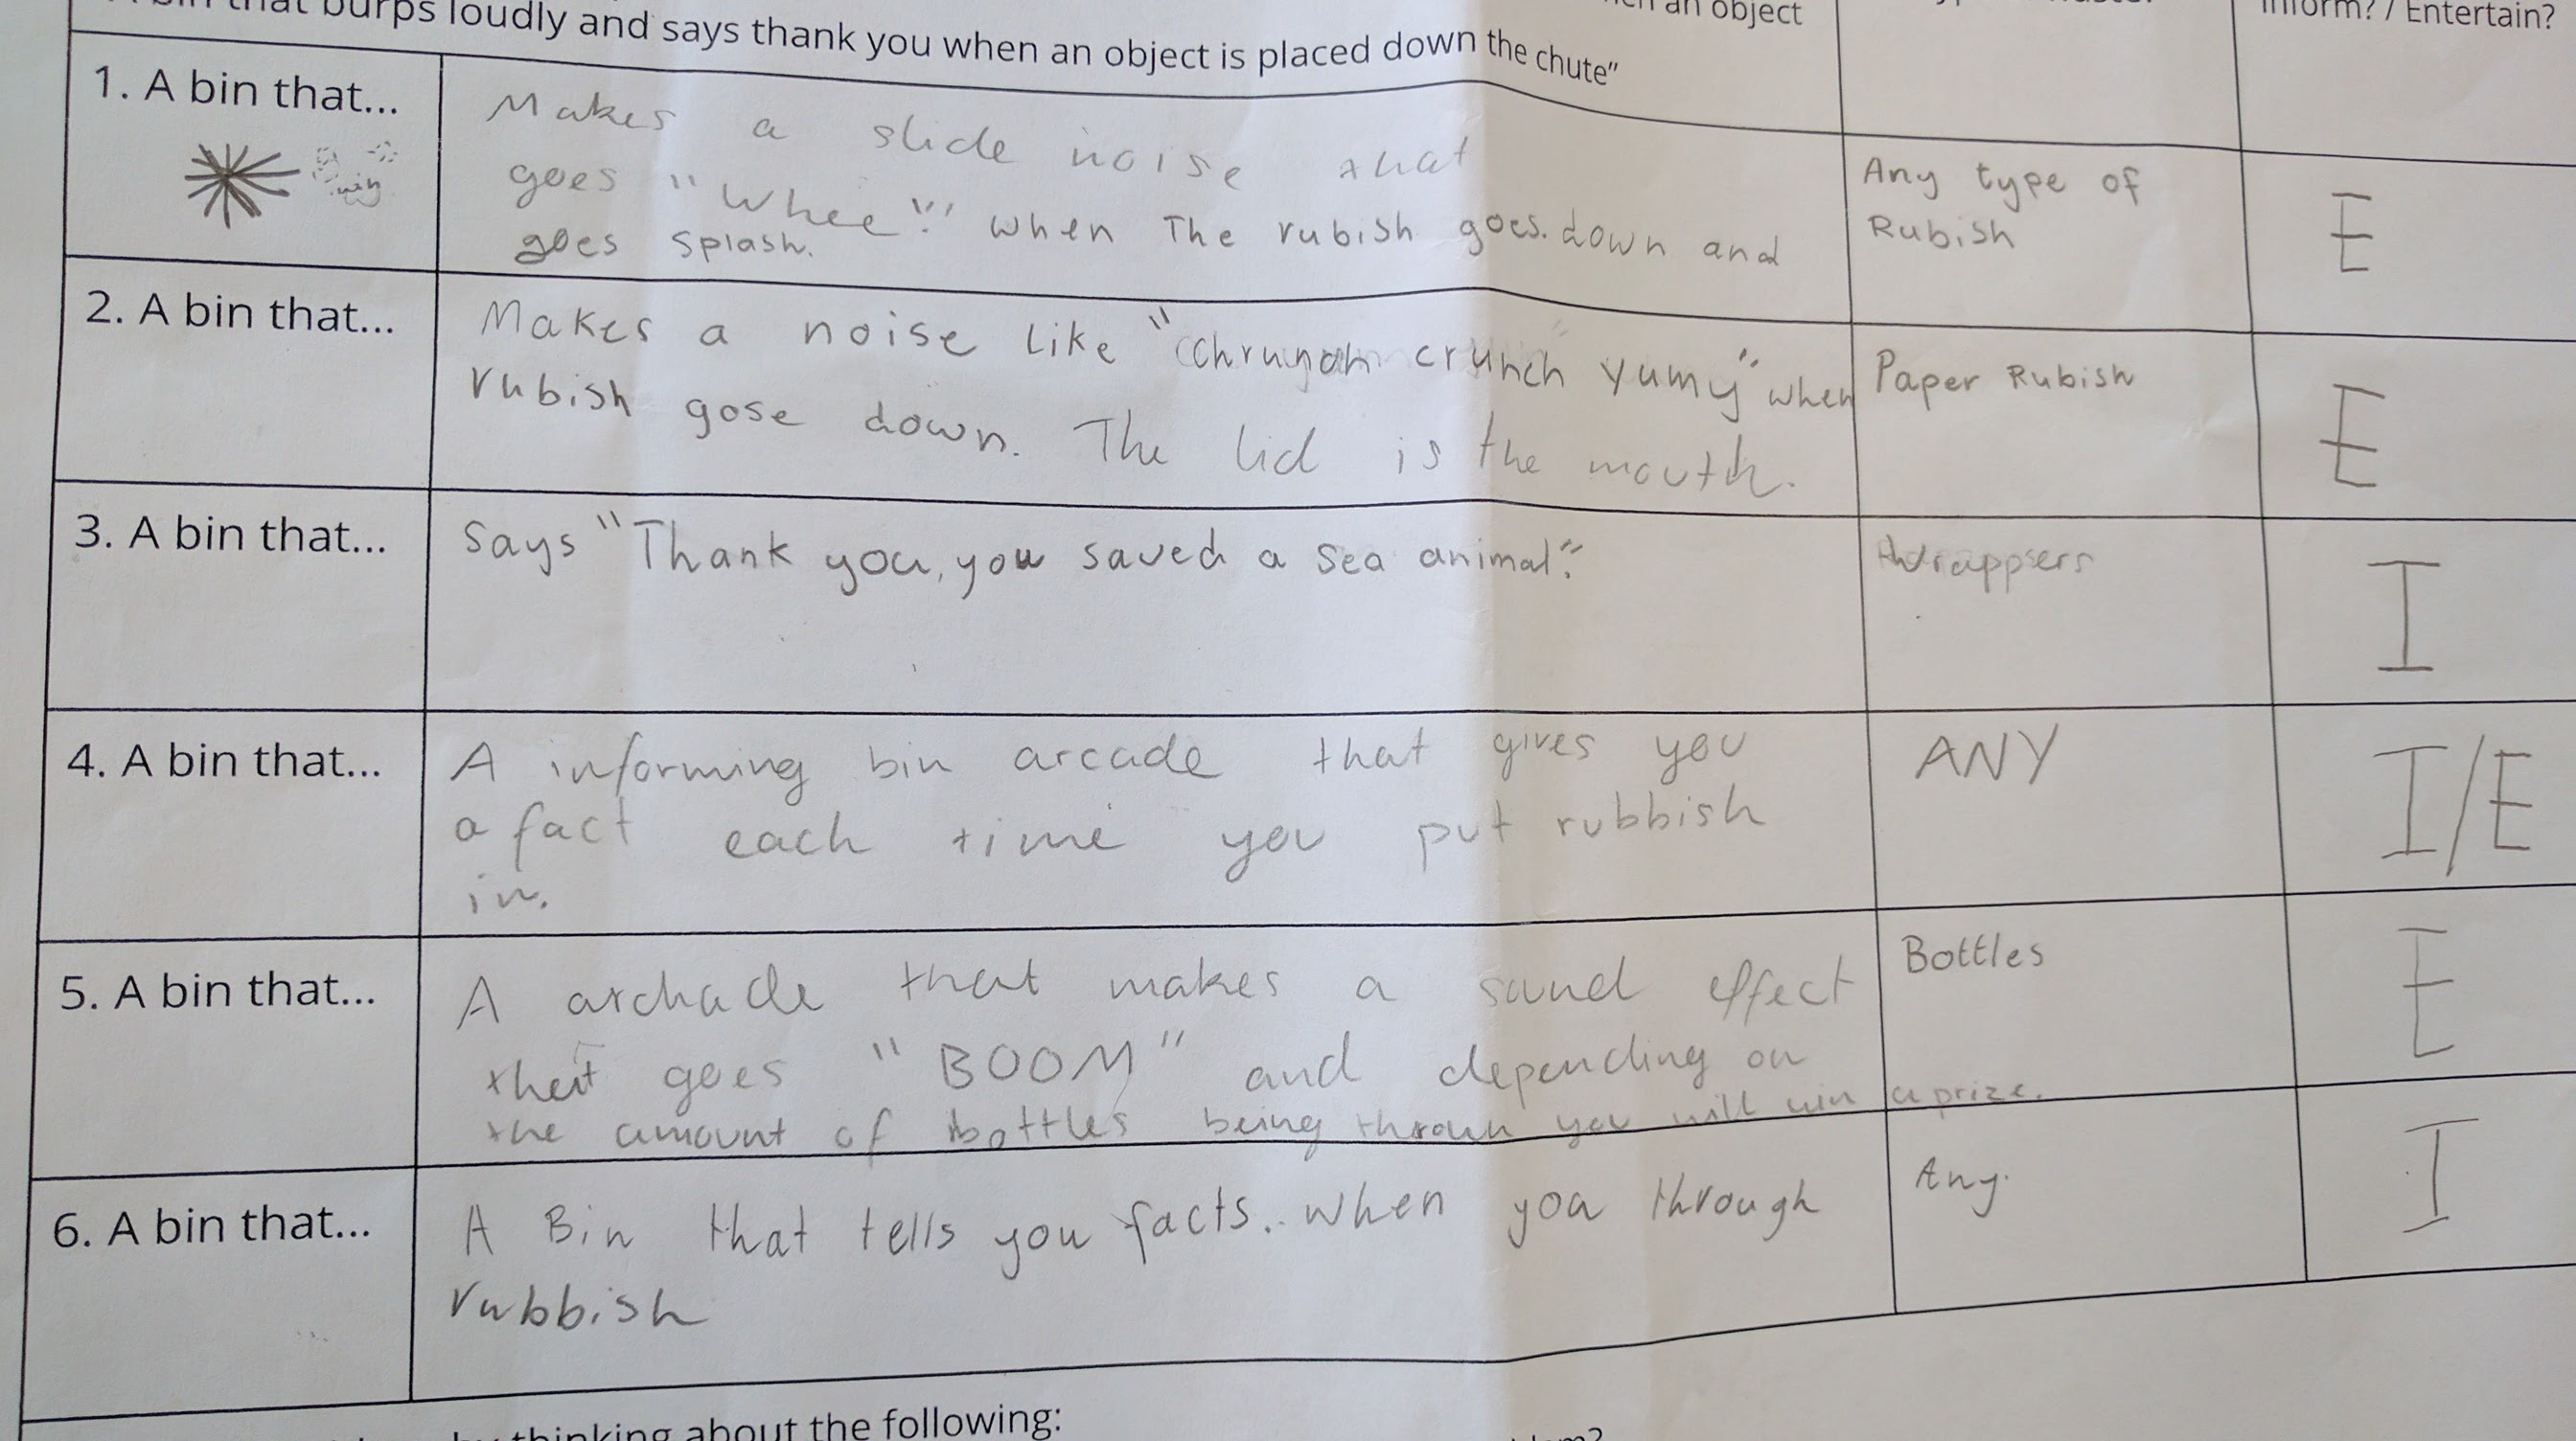 burps loudly and says thank you when an object is placed down the chute"
an object
Inform? / Entertain?
1. A bin that...
Makes a slide noise that
goes "Whee"!" when The rubish goes. down and
goes splash.
Any type of
Rubish
E
2. A bin that...
Makes a noise like " crunch yumy" when
rubish gose down. The lid is the mouth.
Paper Rubish
E
3. A bin that...
Says "Thank you, you saved a sea animal".
Wrappers
I
4. A bin that...
A informing bin arcade that gives you
a fact each time you put rubbish
in.
ANY
I/E
5. A bin that...
A archade that makes a sound effect
that goes "BOOM" and depending on
the amount of bottles being thrown you will win a prize.
Bottles
E
6. A bin that...
A Bin that tells you facts. when you through
rubbish
Any.
I
thinking about the following: